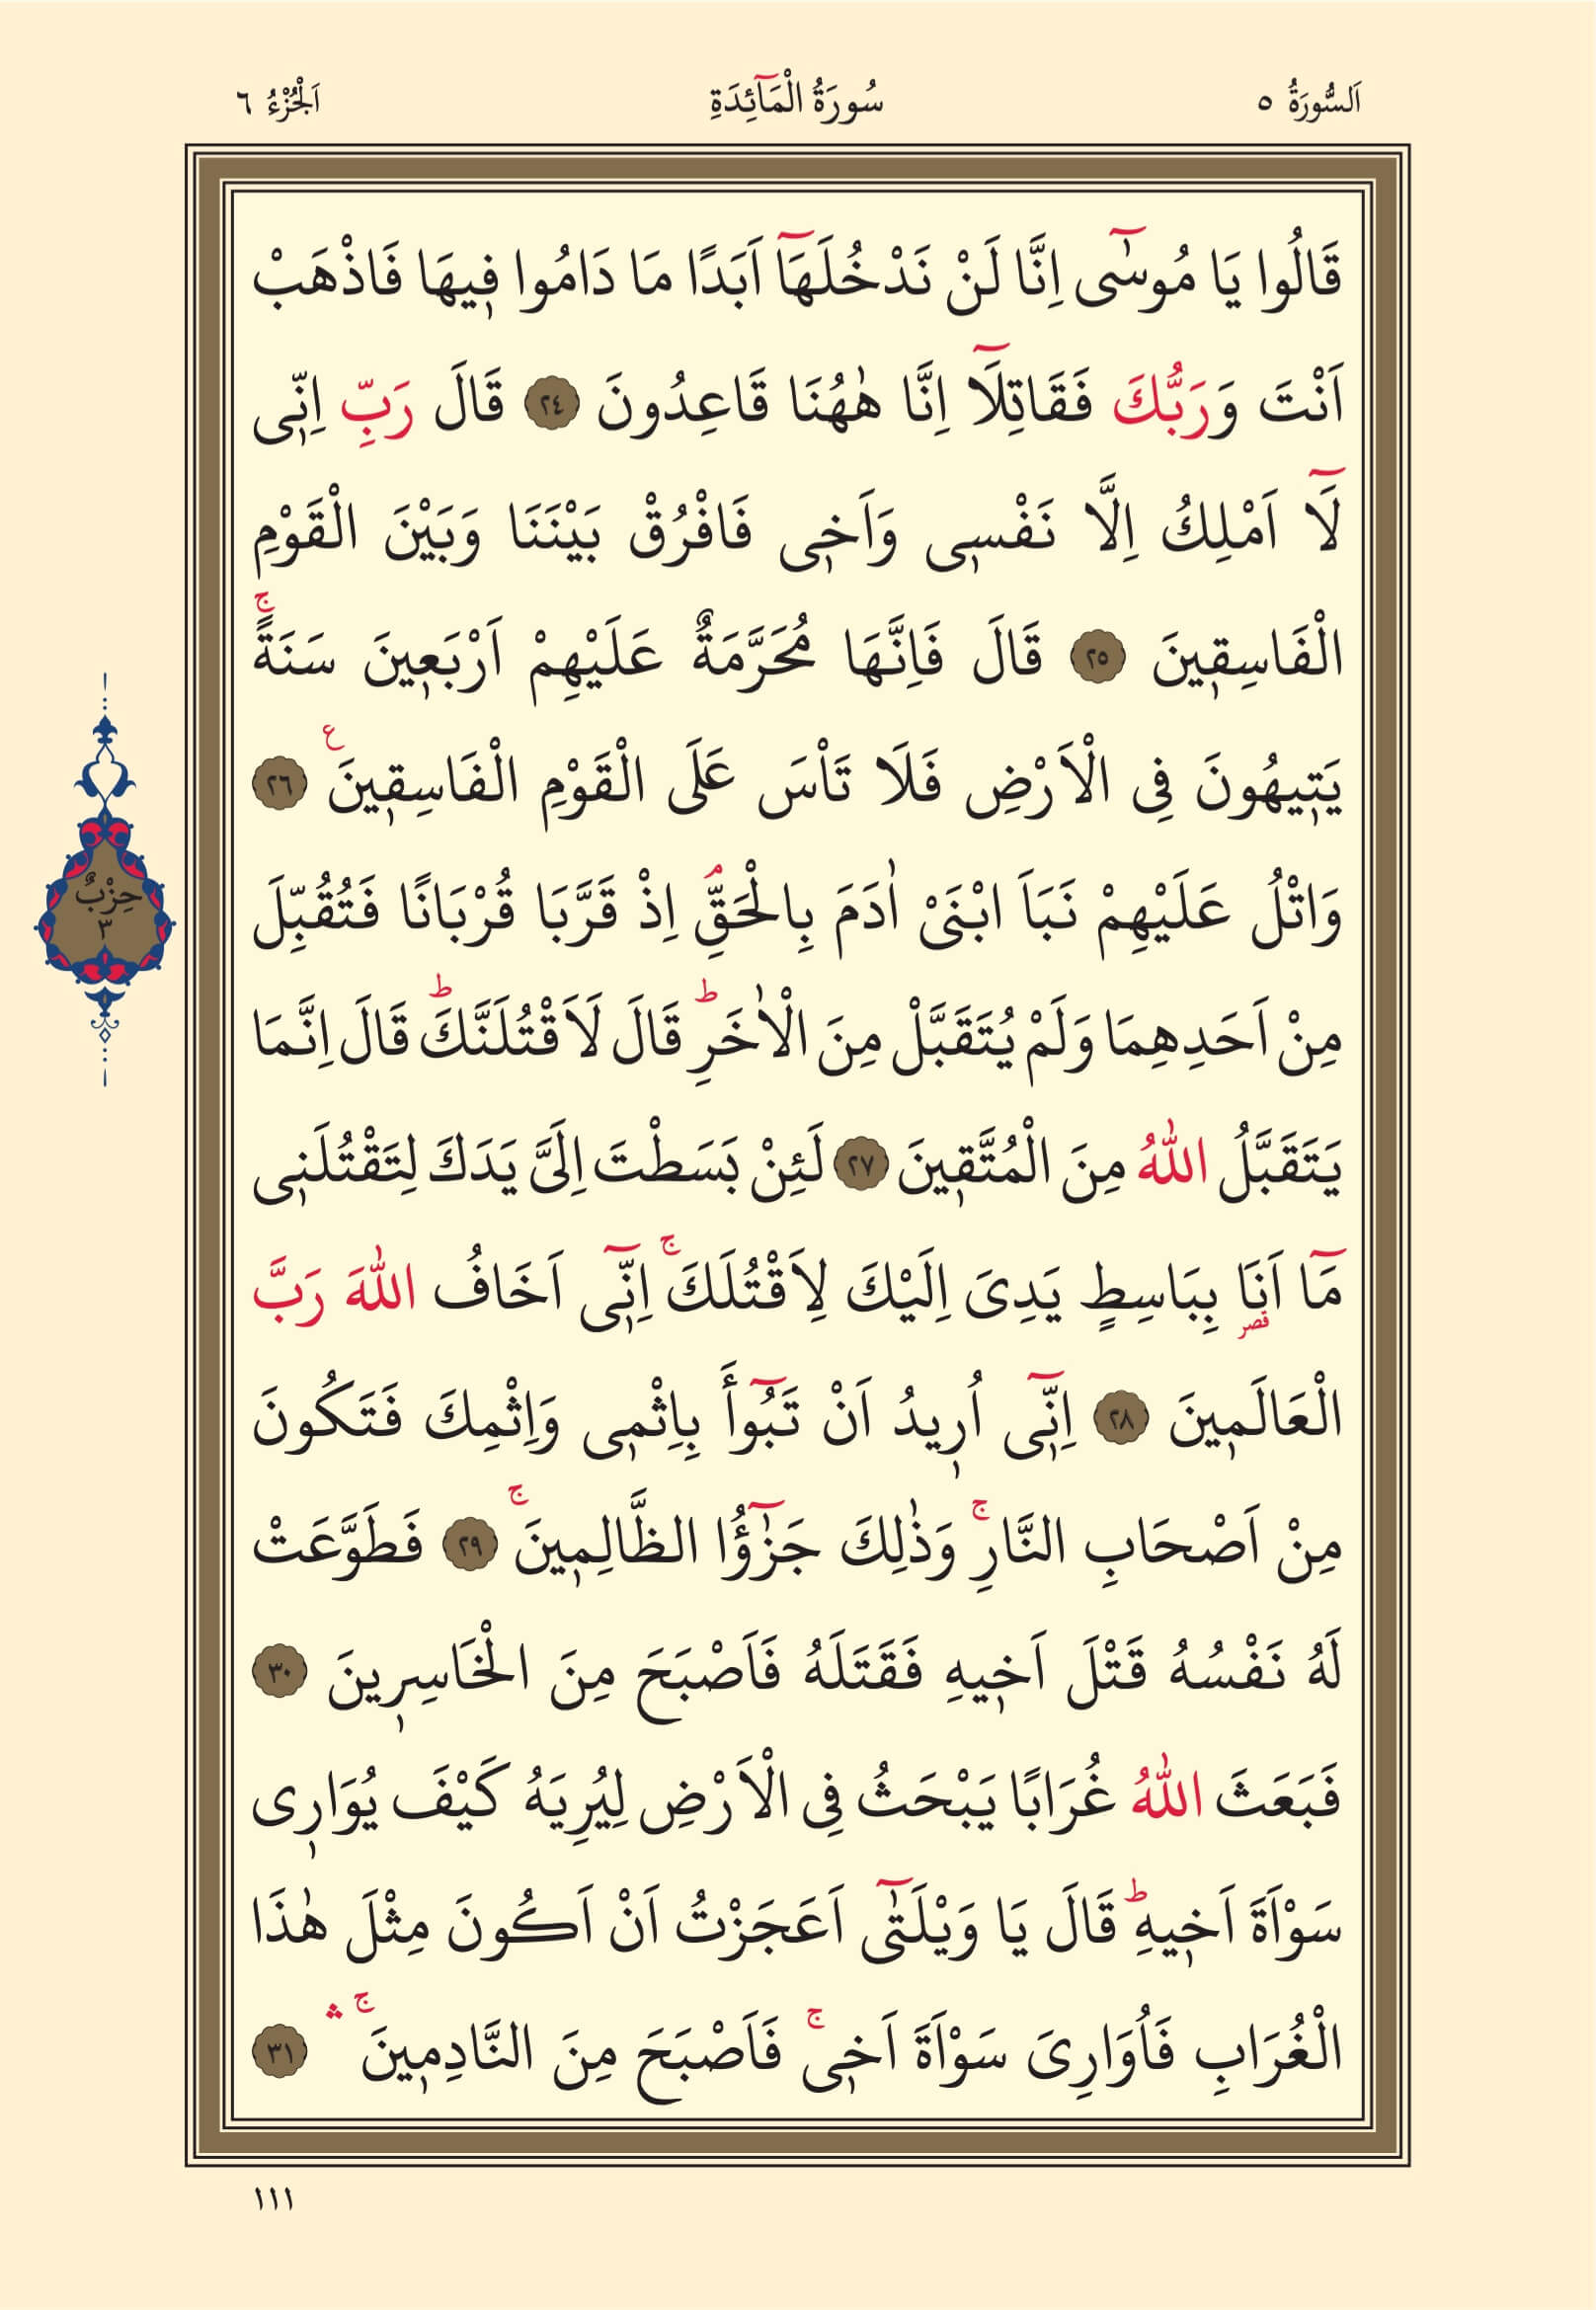 اَلسُّورَةُ ٥ سُورَةُ الْمَٓائِدَةِ اَلْجُزْءُ ٦
قَالُوا يَا مُوسٰٓى اِنَّا لَنْ نَدْخُلَهَٓا اَبَدًا مَا دَامُوا ف۪يهَا فَاذْهَبْ
اَنْتَ وَرَبُّكَ فَقَاتِلَٓا اِنَّا هٰهُنَا قَاعِدُونَ ﴿٢٤﴾ قَالَ رَبِّ اِنّ۪ى
لَٓا اَمْلِكُ اِلَّا نَفْس۪ى وَاَخ۪ى فَافْرُقْ بَيْنَنَا وَبَيْنَ الْقَوْمِ
الْفَاسِق۪ينَ ﴿٢٥﴾ قَالَ فَاِنَّهَا مُحَرَّمَةٌ عَلَيْهِمْ اَرْبَع۪ينَ سَنَةًۚ
يَت۪يهُونَ فِى الْاَرْضِ فَلَا تَاْسَ عَلَى الْقَوْمِ الْفَاسِق۪ينَ ع ﴿٢٦﴾
حِزْبٌ
٣
وَاتْلُ عَلَيْهِمْ نَبَاَ ابْنَىْ اٰدَمَ بِالْحَقِّۢ اِذْ قَرَّبَا قُرْبَانًا فَتُقُبِّلَ
مِنْ اَحَدِهِمَا وَلَمْ يُتَقَبَّلْ مِنَ الْاٰخَرِؕ قَالَ لَاَقْتُلَنَّكَؕ قَالَ اِنَّمَا
يَتَقَبَّلُ اللّٰهُ مِنَ الْمُتَّق۪ينَ ﴿٢٧﴾ لَئِنْ بَسَطْتَ اِلَىَّ يَدَكَ لِتَقْتُلَن۪ى
مَٓا اَنَا۬ قصر بِبَاسِطٍ يَدِىَ اِلَيْكَ لِاَقْتُلَكَۚ اِنّ۪ٓى اَخَافُ اللّٰهَ رَبَّ
الْعَالَم۪ينَ ﴿٢٨﴾ اِنّ۪ٓى اُر۪يدُ اَنْ تَبُٓوأَ بِاِثْم۪ى وَاِثْمِكَ فَتَكُونَ
مِنْ اَصْحَابِ النَّارِۚ وَذٰلِكَ جَزٰٓؤُا الظَّالِم۪ينَۚ ﴿٢٩﴾ فَطَوَّعَتْ
لَهُ نَفْسُهُ قَتْلَ اَخ۪يهِ فَقَتَلَهُ فَاَصْبَحَ مِنَ الْخَاسِر۪ينَ ﴿٣٠﴾
فَبَعَثَ اللّٰهُ غُرَابًا يَبْحَثُ فِى الْاَرْضِ لِيُرِيَهُ كَيْفَ يُوَار۪ى
سَوْاَةَ اَخ۪يهِؕ قَالَ يَا وَيْلَتٰٓى اَعَجَزْتُ اَنْ اَكُونَ مِثْلَ هٰذَا
الْغُرَابِ فَاُوَارِىَ سَوْاَةَ اَخ۪ىۚ فَاَصْبَحَ مِنَ النَّادِم۪ينَۚ ۛ ﴿٣١﴾
١١١